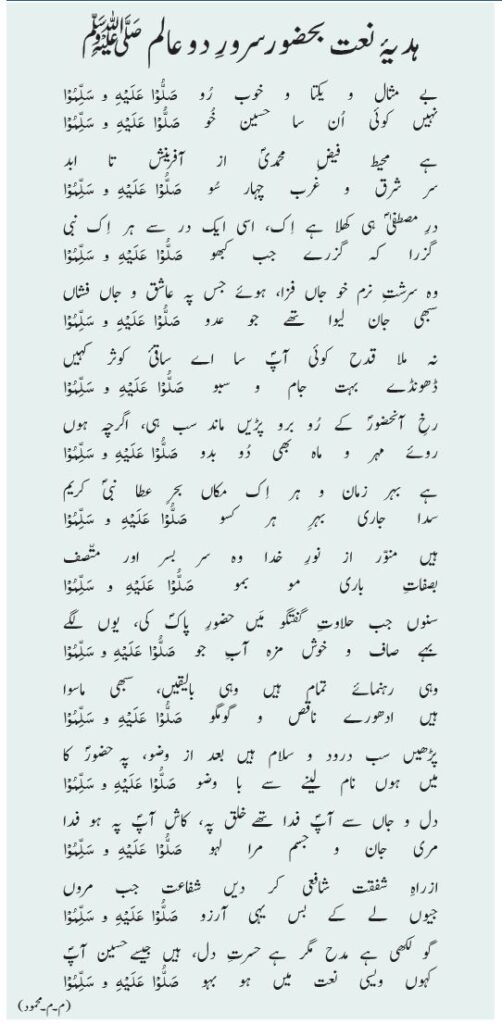 ہدیۂ نعت بحضور سرورِ دو عالم ﷺ
بے مثال و یکتا و خوب رُو صَلُّوْا عَلَیْہِ و سَلِّمُوْا
نہیں کوئی اُن سا حسین خُو صَلُّوْا عَلَیْہِ و سَلِّمُوْا
ہے محیط فیضِ محمدیؐ از آفرینش تا ابد
سر شرق و غرب چہار سُو صَلُّوْا عَلَیْہِ و سَلِّمُوْا
درِ مصطفیٰؐ ہی کھلا ہے اِک، اسی ایک در سے ہر اِک نبی
گزرا کہ گزرے جب کبھو صَلُّوْا عَلَیْہِ و سَلِّمُوْا
وہ سرشت نرم خو جاں فزا، ہوئے جس پہ عاشق و جاں فشاں
سبھی جان لیوا تھے جو عدو صَلُّوْا عَلَیْہِ و سَلِّمُوْا
نہ ملا قدح کوئی آپؐ سا اے ساقیٔ کوثر کہیں
ڈھونڈے بہت جام و سبو صَلُّوْا عَلَیْہِ و سَلِّمُوْا
رخِ آنحضورؐ کے رُو برو پڑیں ماند سب ہی، اگرچہ ہوں
روئے مہر و ماہ بھی دُو بدو صَلُّوْا عَلَیْہِ و سَلِّمُوْا
ہے بہر زمان و ہر اِک مکاں بحرِ عطا نبیؐ کریم
سدا جاری بہرِ ہر کسو صَلُّوْا عَلَیْہِ و سَلِّمُوْا
ہیں منوّر از نورِ خدا وہ سر بسر اور متّصف
بصفاتِ باری مو بمو صَلُّوْا عَلَیْہِ و سَلِّمُوْا
سنوں جب حلاوتِ گفتگو میَں حضورِ پاکؐ کی، یوں لگے
بہے صاف و خوش مزہ آبِ جو صَلُّوْا عَلَیْہِ و سَلِّمُوْا
وہی رہنمائے تمام ہیں وہی بالیقیں، سبھی ماسوا
ہیں ادھورے ناقص و گومگو صَلُّوْا عَلَیْہِ و سَلِّمُوْا
پڑھیں سب درود و سلام ہیں بعد از وضو، پہ حضورؐ کا
میں ہوں نام لینے سے با وضو صَلُّوْا عَلَیْہِ و سَلِّمُوْا
دل و جاں سے آپؐ فدا تھے خلق پہ، کاش آپؐ پہ ہو فدا
مری جان و جسم مرا لہو صَلُّوْا عَلَیْہِ و سَلِّمُوْا
ازراہِ شفقت شافعی کر دیں شفاعت جب مروں
جیوں لے کے بس یہی آرزو صَلُّوْا عَلَیْہِ و سَلِّمُوْا
گو لکھی ہے مدح مگر ہے حسرتِ دل، ہیں جیسے حسین آپؐ
کہوں ویسی نعت میں ہو بہو صَلُّوْا عَلَیْہِ و سَلِّمُوْا
(م۔م۔محمود)